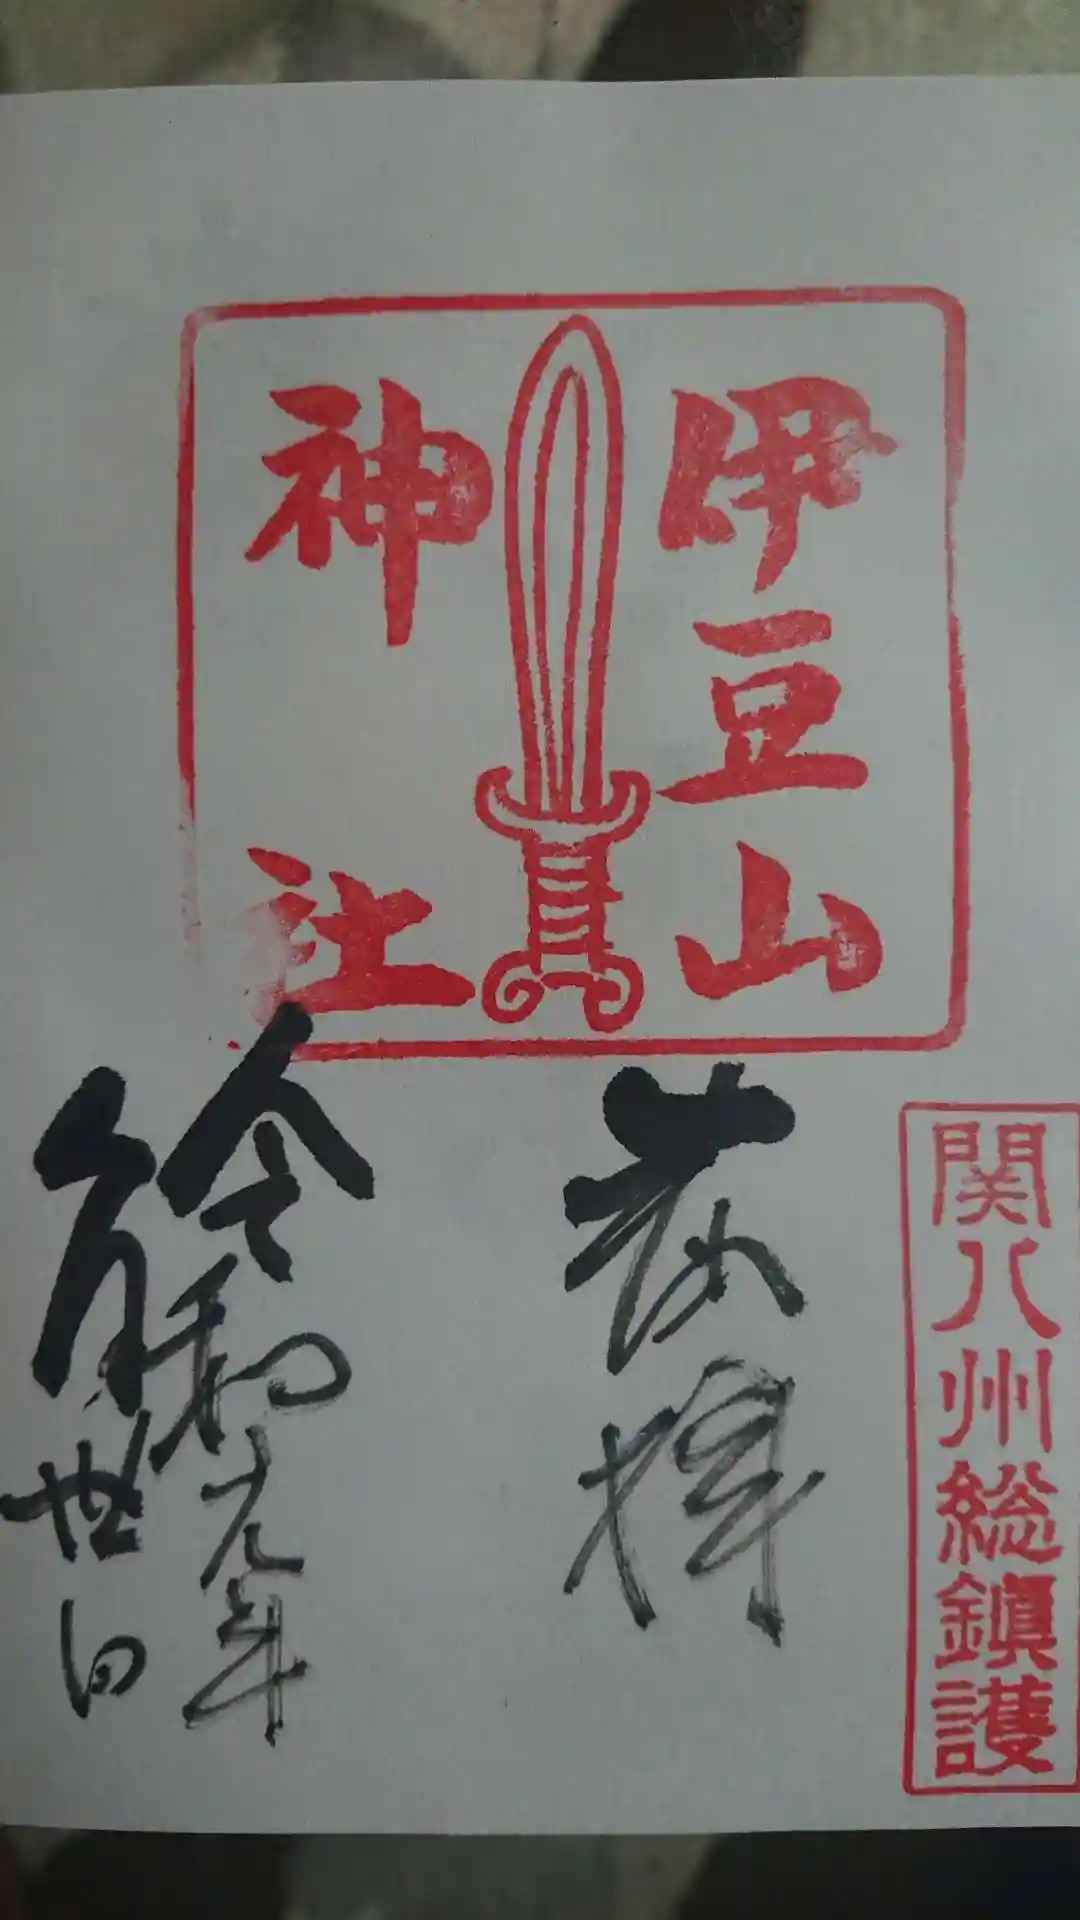 関八州総鎮護
伊豆山
神社
恭拝
令和元年
月 日